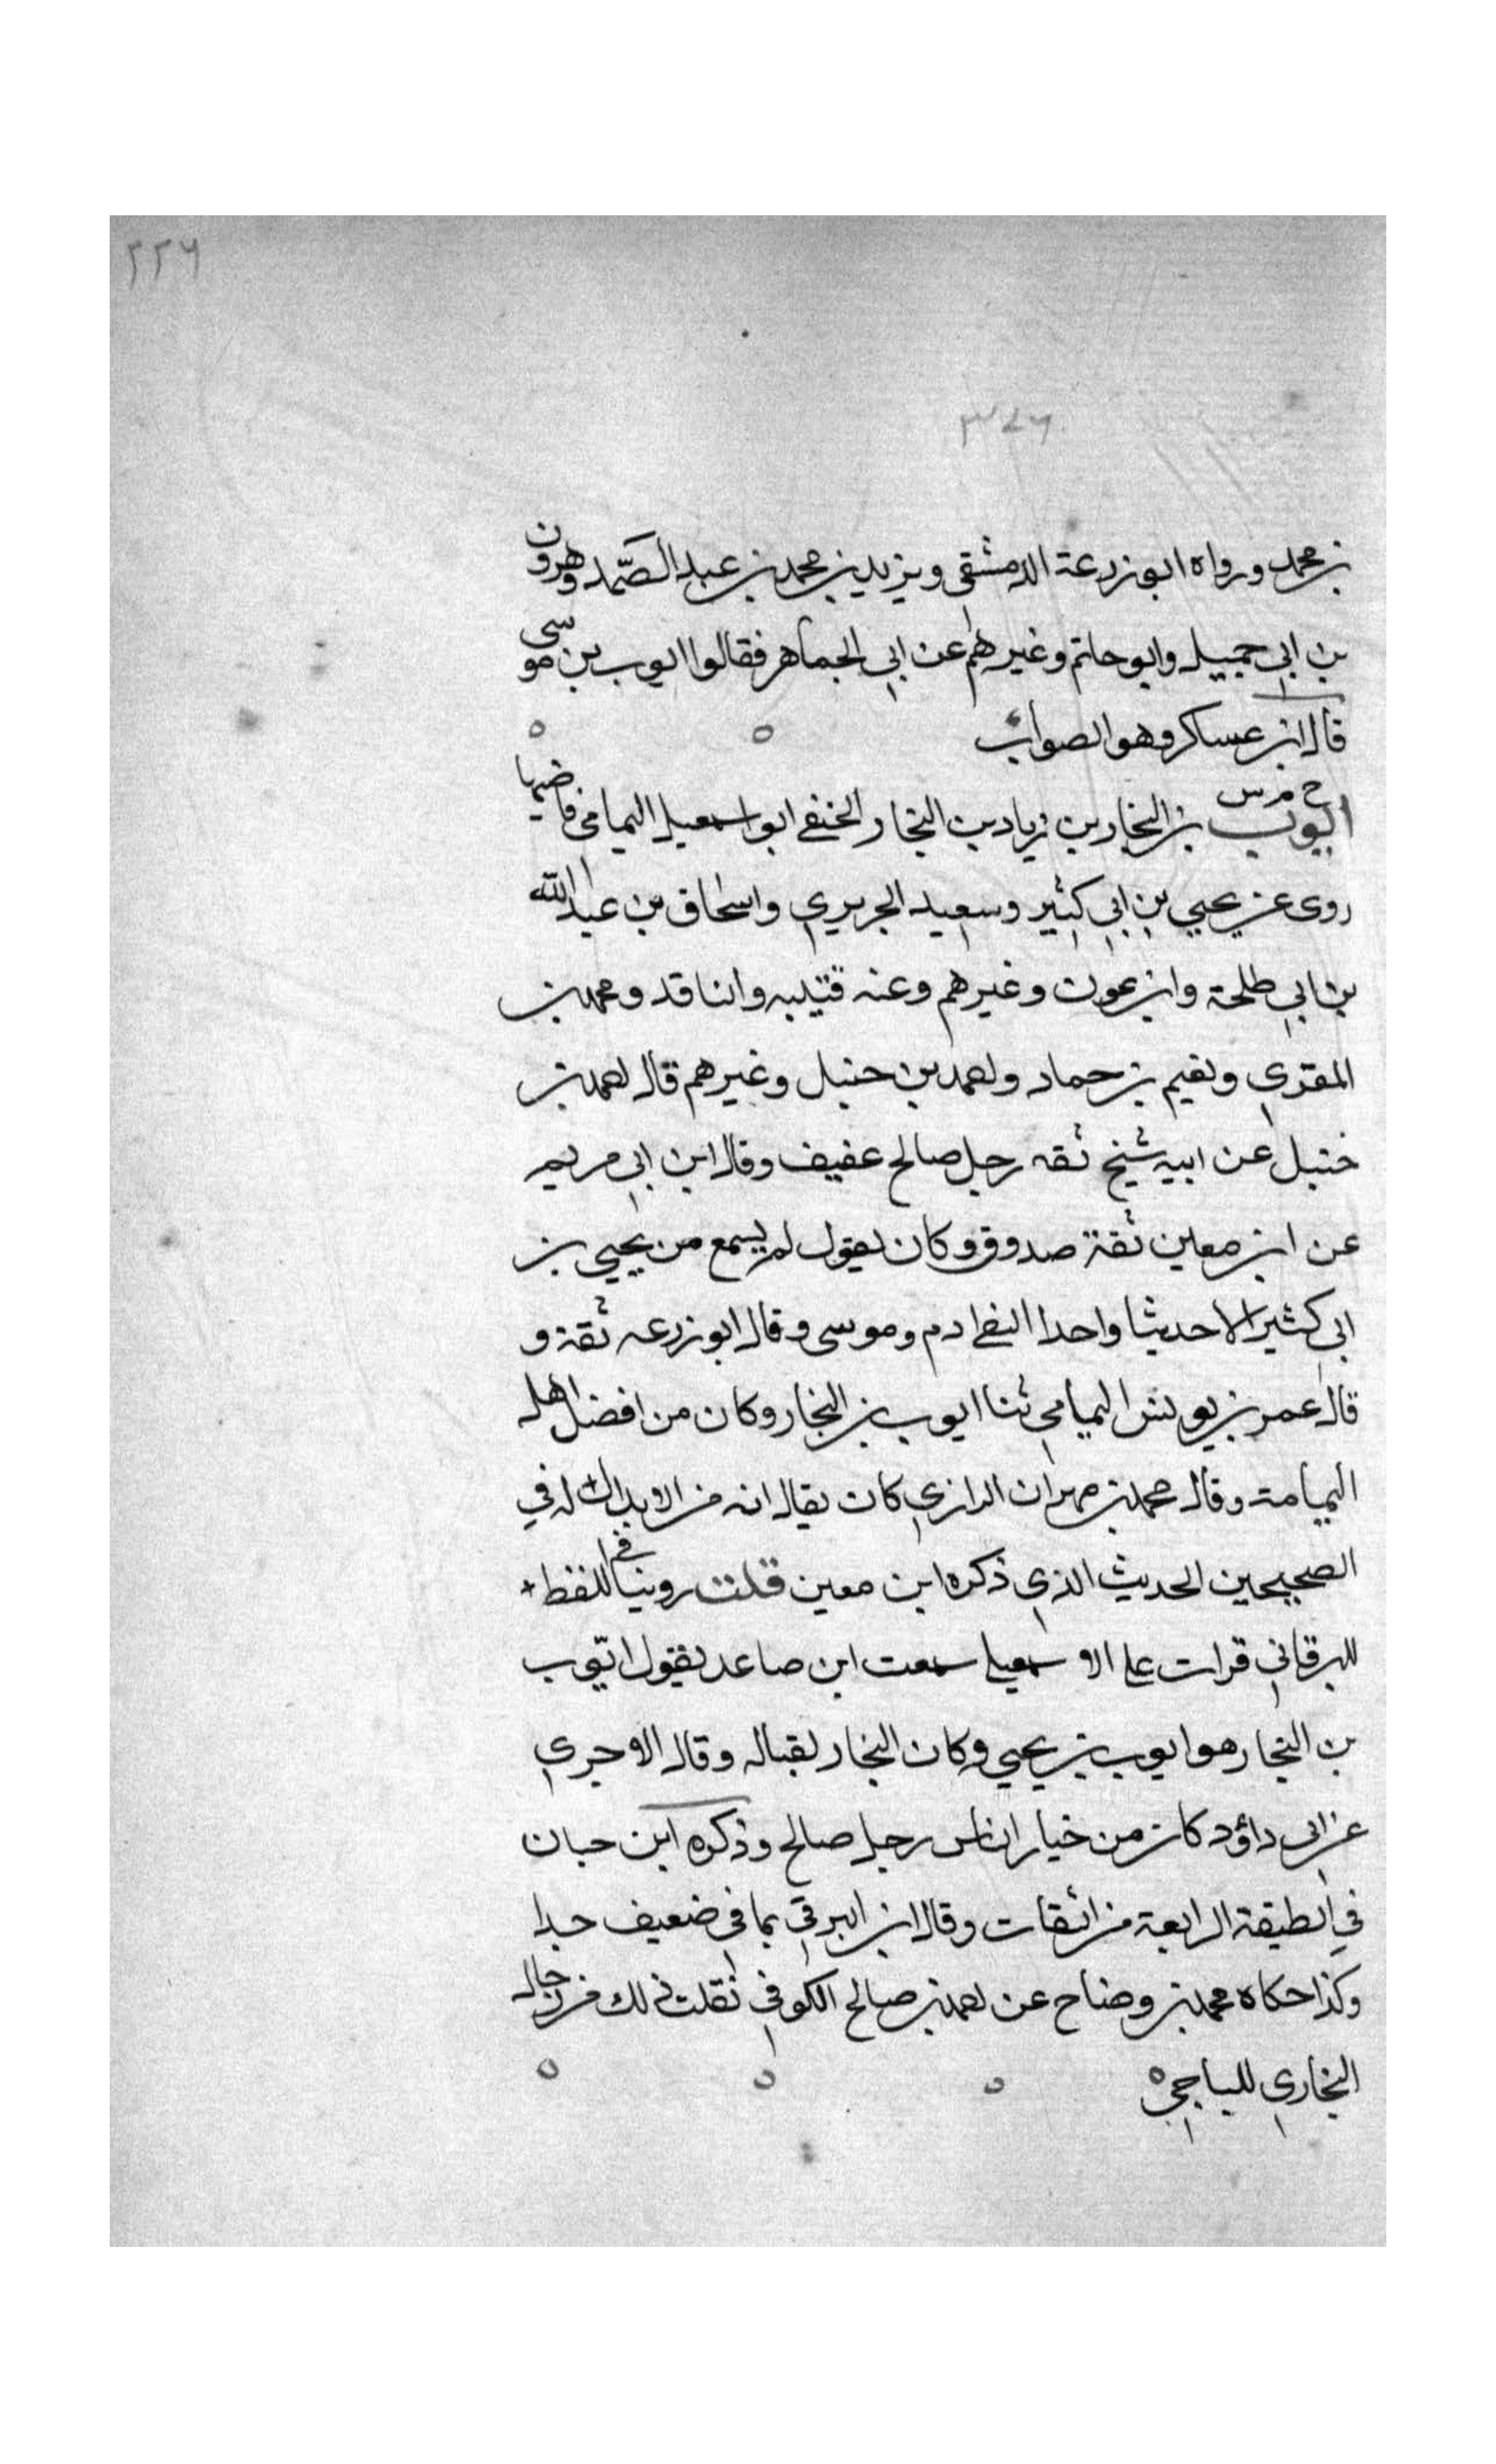 ٢٢٦
٣٧٦
بن محمد ورواه ابو زرعة الدمشقي ويزيد بن محمد بن عبد الصّمد وهرون
بن ابي جميل وابو حاتم وغيرهم عن ابي الجماهر فقالوا ايوب بن موسى
قال ابن عساكر وهو الصواب
خ م س
ايوب بن النجار بن زياد بن النجار الحنفي ابو اسمعيل اليمامي قاضيها
روى عن يحيى بن ابي كثير وسعيد الجريري واسحاق بن عبد الله
بن ابي طلحة وابن عون وغيرهم وعنه قتيبه والناقد ومحمد بن
المقري ونعيم بن حماد واحمد بن حنبل وغيرهم قال احمد بن
حنبل عن ابيه شيخ ثقه رجل صالح عفيف وقال ابن ابي مريم
عن ابن معين ثقة صدوق وكان يقول لم يسمع من يحيى بن
ابي كثير الا حديثا واحدا التقى ادم وموسى وقال ابو زرعه ثقة و
قال عمر بن يونس اليمامي ثنا ايوب بن النجار وكان من افضل اهل
اليمامة وقال محمد بن مهران الرازي كان يقال انه من الابدال له في
الصحيحين الحديث الذي ذكره ابن معين قلت روينا في اللقط
للبرقاني قرات على الاسمعيلي سمعت ابن صاعد يقول ايّوب
بن النجار هو ايوب بن يحيى وكان النجار لقبا له وقال الاجري
عن ابي داؤد كان من خيار الناس رجل صالح وذكره ابن حبان
في الطبقة الرابعة من الثقات وقال ابن البرقي يمامي ضعيف جدا
وكذا حكاه محمد بن وضاح عن احمد بن صالح الكوفي نقلت ذلك من رجال
البخاري للباجي